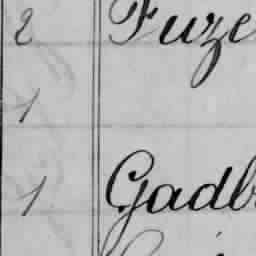 2 Fuze
1
1 Gadb